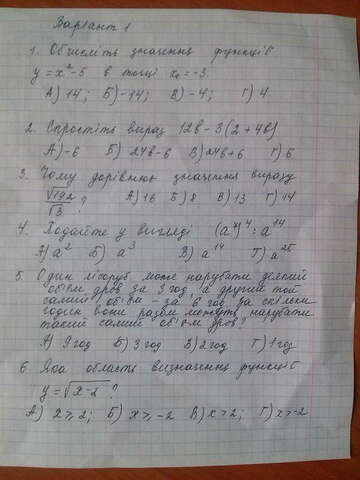 Варіант 1
1. Обчисліть значення функції
y = x² - 5 в точці x₀ = -3.
А) 14; Б) -14; В) -4; Г) 4
2. Спростіть вираз 12b - 3(2 + 4b)
А) -6 Б) 24b - 6 В) 24b + 6 Г) 6
3. Чому дорівнює значення виразу
√192/√3 ? А) 16 Б) 8 В) 13 Г) 14
4. Подайте у вигляді (a⁷)⁴ : a¹⁴
А) a² Б) a³ В) a¹⁴ Г) a²⁵
5. Один лісоруб може нарубати деякий
об'єм дров за 3 год, а другий той
самий об'єм - за 6 год. за скільки
годин вони разом можуть нарубати
такий самий об'єм дров?
А) 9 год Б) 3 год В) 2 год Г) 1 год
6. Яка область визначення функції
y = √x-2 ?
А) x ≥ 2; Б) x ≥ -2 В) x > 2; Г) x > -2